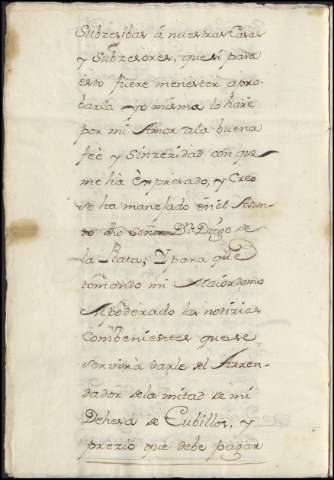 Subcesibas á nuestras Casas
y Subcesores, que si para
esto fuere menester apro-
barla yo misma lo hare
por mi Amor a la buena
feè y Sinzeridad con que
me hà Expresado, y Creo
se ha manejado en el Asun-
to dho Señor Dn. Diego de
la Plata; Y para que
tomando mi Maiordomo
Apoderado las notizias
Combenientes que se
servirà darle del Arren-
dador de la mitad de mi
Dehesa de Cubillos, y
prezio que debe pagar